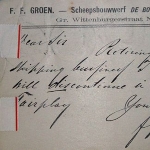 F. F. GROEN. — Scheepsbouwwerf DE BO
Gr. Wittenburgerstraat N
Dear Sir
Retiring
shipping business
will discontinue
Fairplay
You